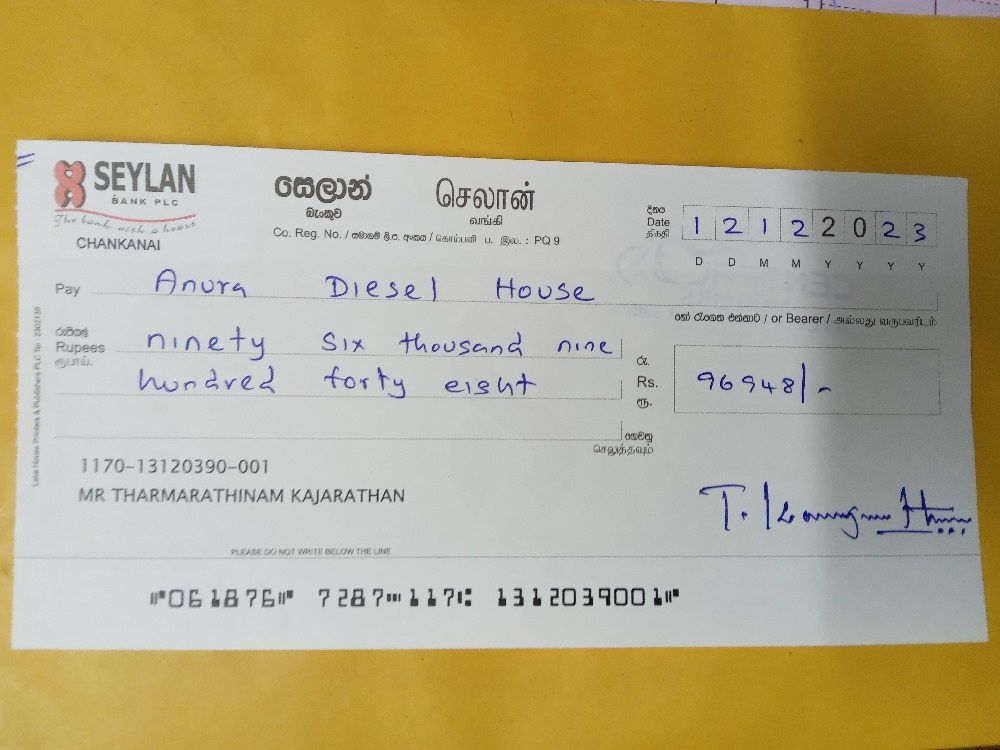 SEYLAN
BANK PLC
The bank with a heart
CHANKANAI
සෙලාන්
බැංකුව
செலான்
வங்கி
Co. Reg. No. / සමාගම් ලි.ප. අංකය / கொம்பனி ப. இல. : PQ 9
දිනය
Date
திகதி
1 2 1 2 2 0 2 3
D D M M Y Y Y Y
Pay Anura Diesel House
හෝ රැගෙන එන්නාට / or Bearer / அல்லது வருபவரிடம்
රුපියල්
Rupees ninety six thousand nine
ரூபாய்.
hundred forty eight
රු.
Rs. 96948/-
ரூ.
ගෙවනු
செலுத்தவும்
1170-13120390-001
MR THARMARATHINAM KAJARATHAN
T.
PLEASE DO NOT WRITE BELOW THE LINE
⑈061876⑈ 7287⑉117⑆ 1312039001⑈
Lake House Printers & Publishers PLC Tel